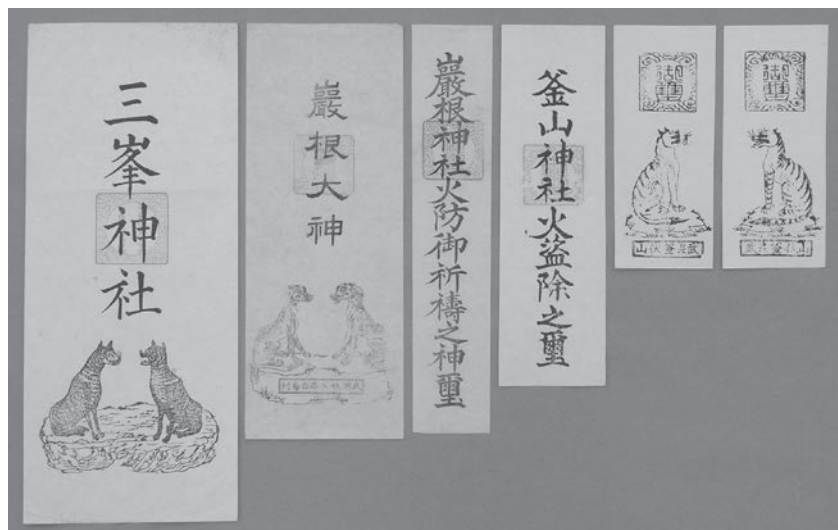 三峯神社
巖根大神
巖根神社火防御祈禱之神璽
釜山神社火盜除之璽
御璽
御璽